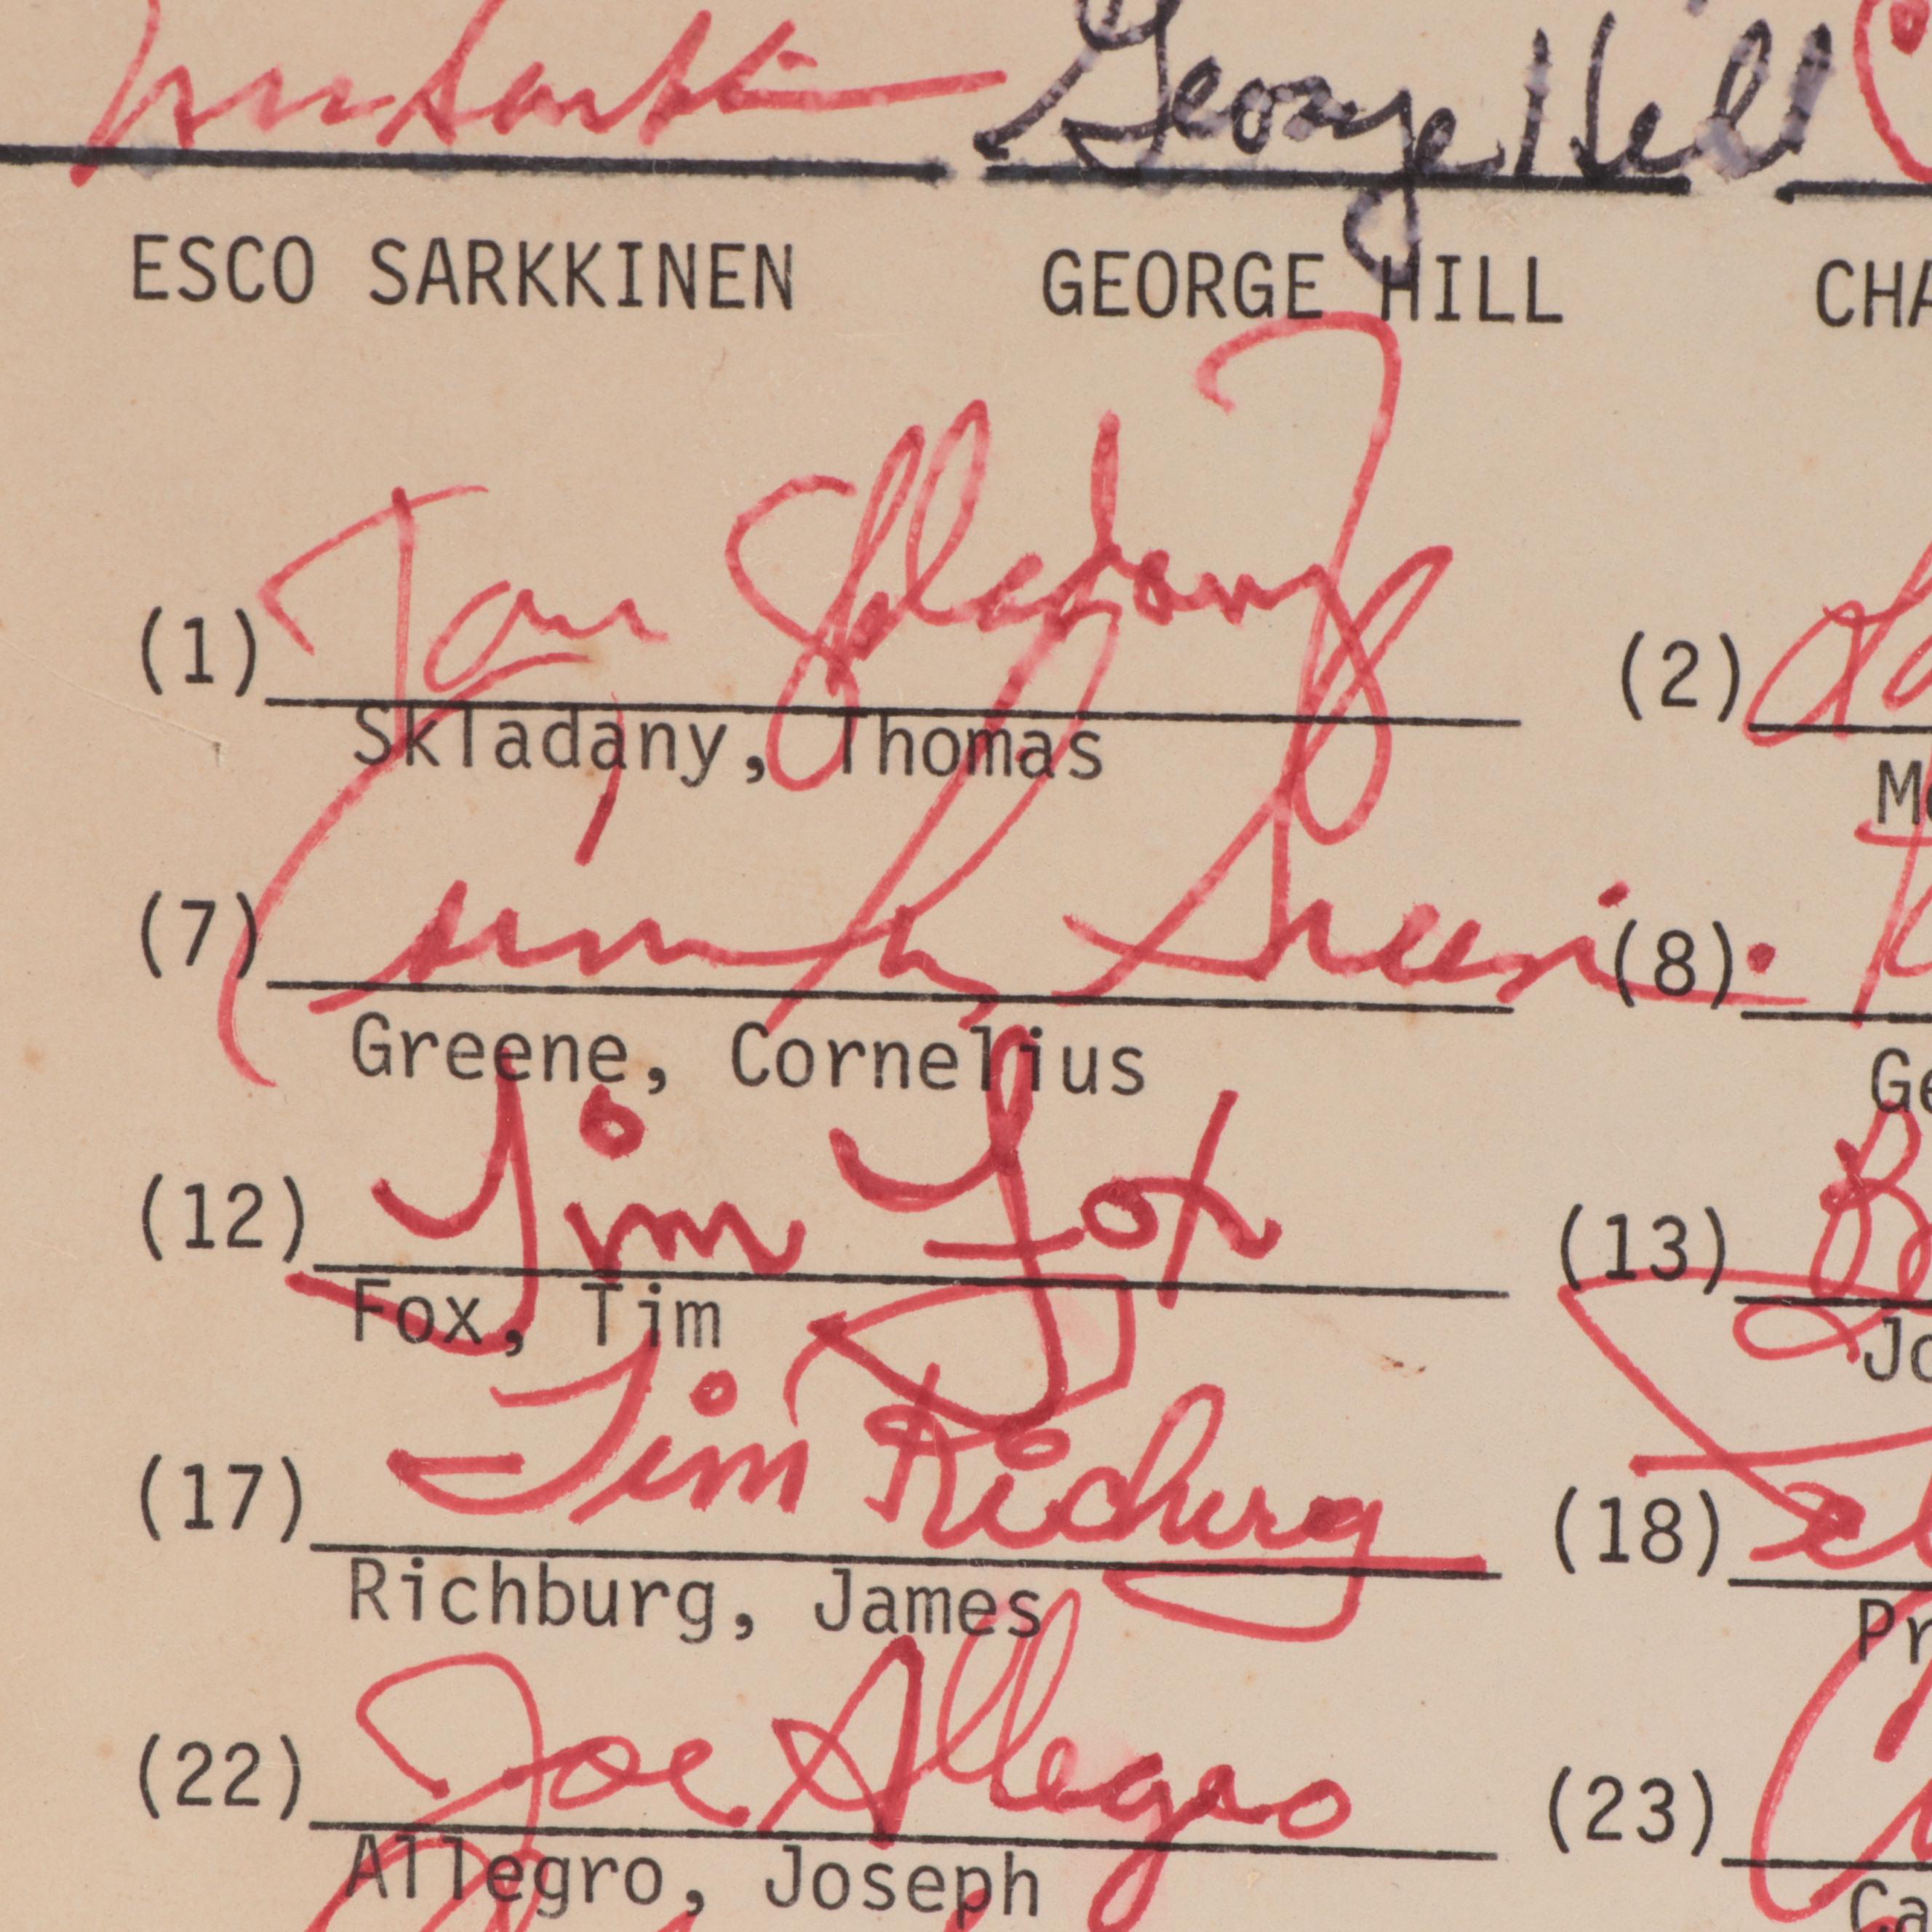 George Hill
ESCO SARKKINEN GEORGE HILL CHA
Tom Skladany
(1) (2)
Skladany, Thomas
(7) (8)
Greene, Cornelius Ge
Tim Fox
(12) (13)
Fox, Tim Jo
Jim Richburg
(17) (18)
Richburg, James Pr
Joe Allegro
(22) (23)
Allegro, Joseph Ca